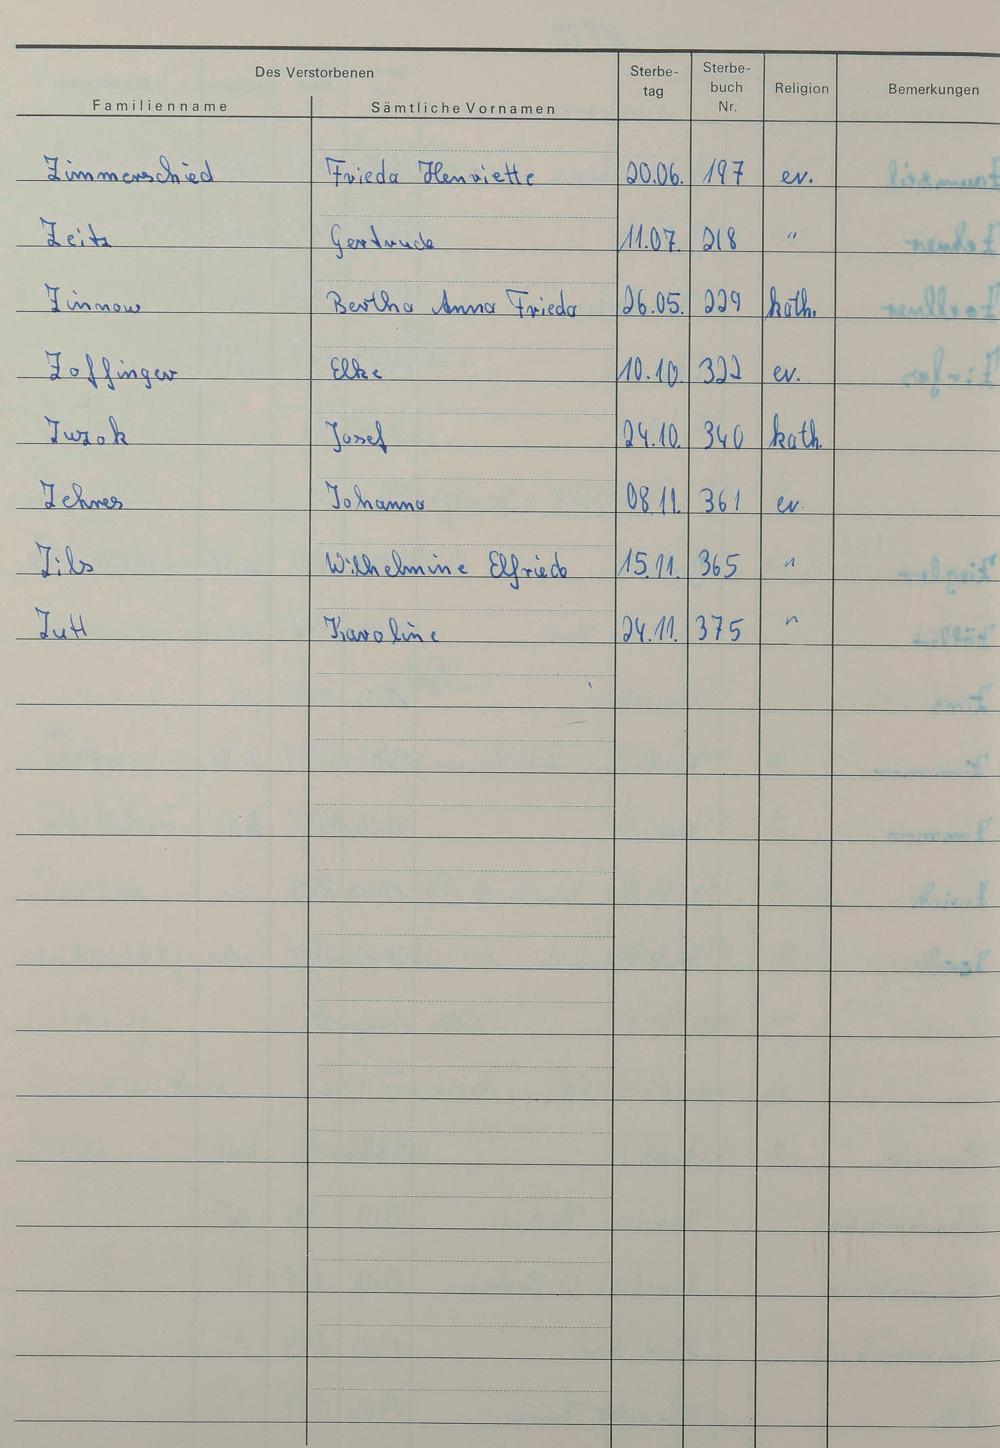 Des Verstorbenen
Sterbe-
tag
Sterbe-
buch
Nr.
Religion
Bemerkungen
Familienname Sämtliche Vornamen
Zimmerschied Frieda Henriette 20.06. 197 ev.
Zeitz Gertrude 11.07. 218 "
Zinnow Bertha Anna Frieda 26.05. 229 kath.
Zoffinger Elke 10.10. 322 ev.
Zwzok Josef 24.10. 340 kath.
Zehres Johanna 08.11. 361 ev.
Zils Wilhelmine Elfriede 15.11. 365 "
Zutt Karoline 24.11. 375 "